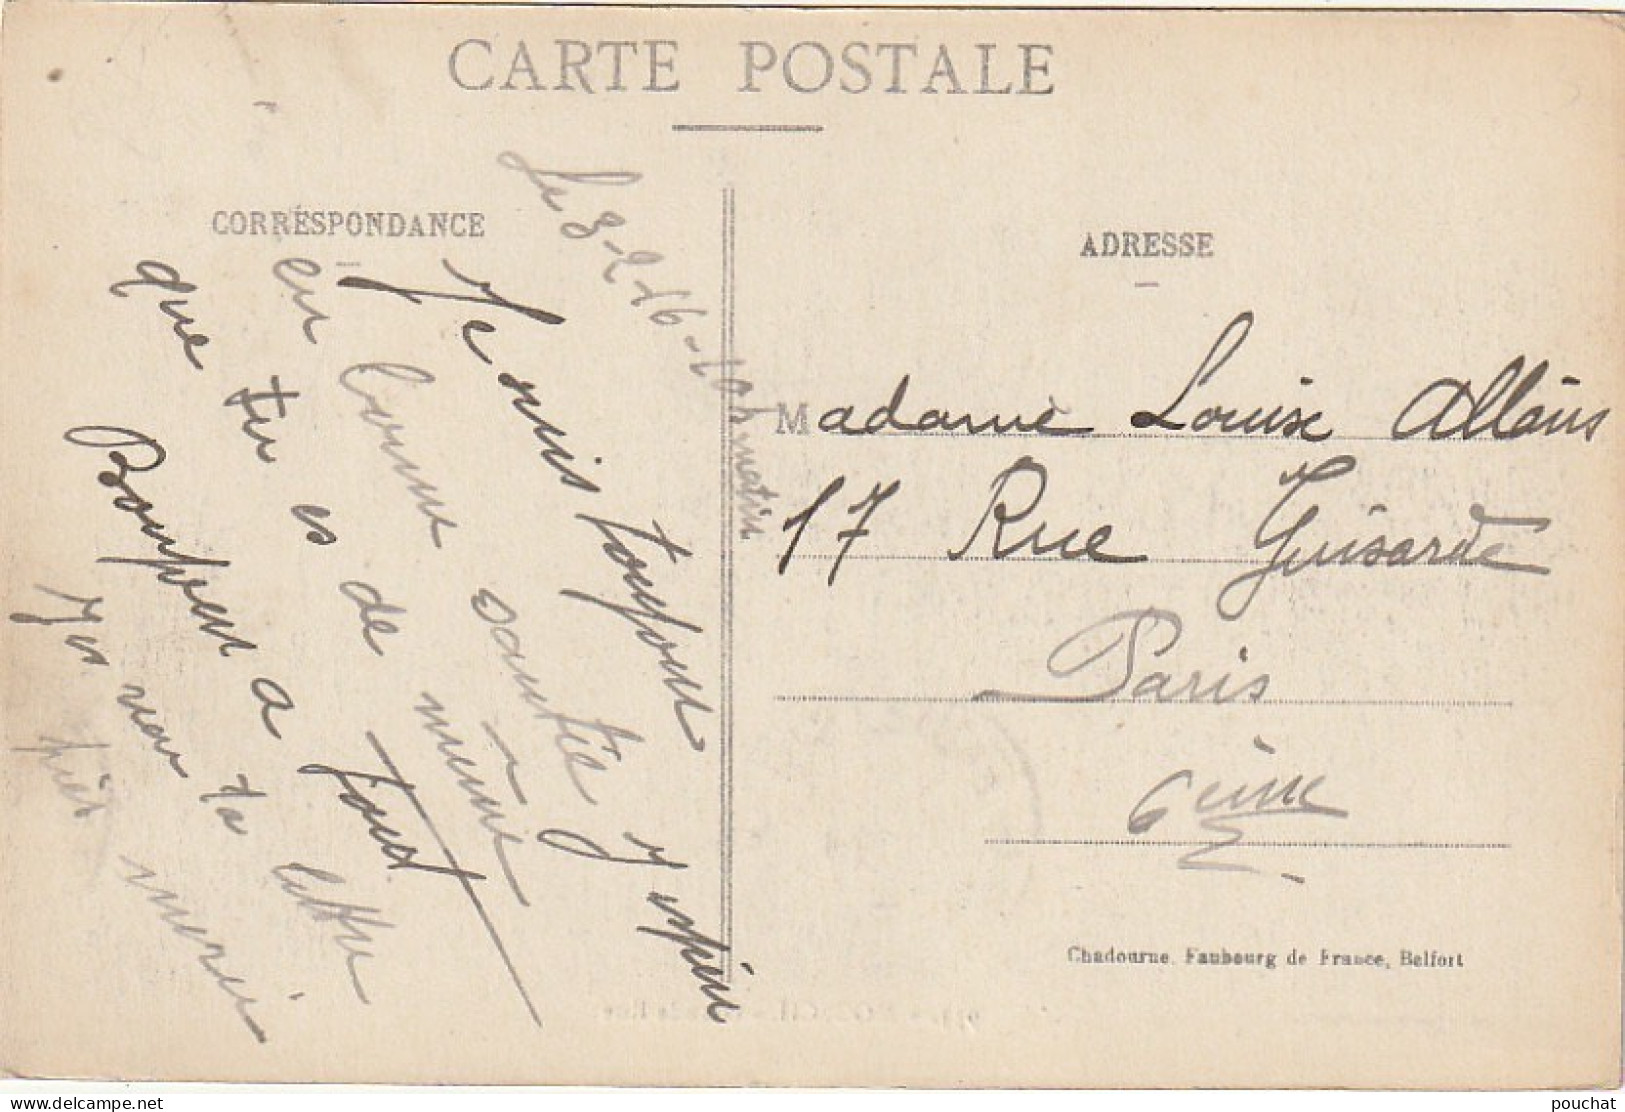 CARTE POSTALE
CORRESPONDANCE
Le 8-2-16-10h matin
Je suis toujour
en bonne santée J'espèr
que tu es de meme
Bonjour a tout
J'es reçu ta lettre
merci
ADRESSE
Madame Louise Allais
17 Rue Guisarde
Paris
6eme
Chadourne. Faubourg de France, Belfort
pouchat